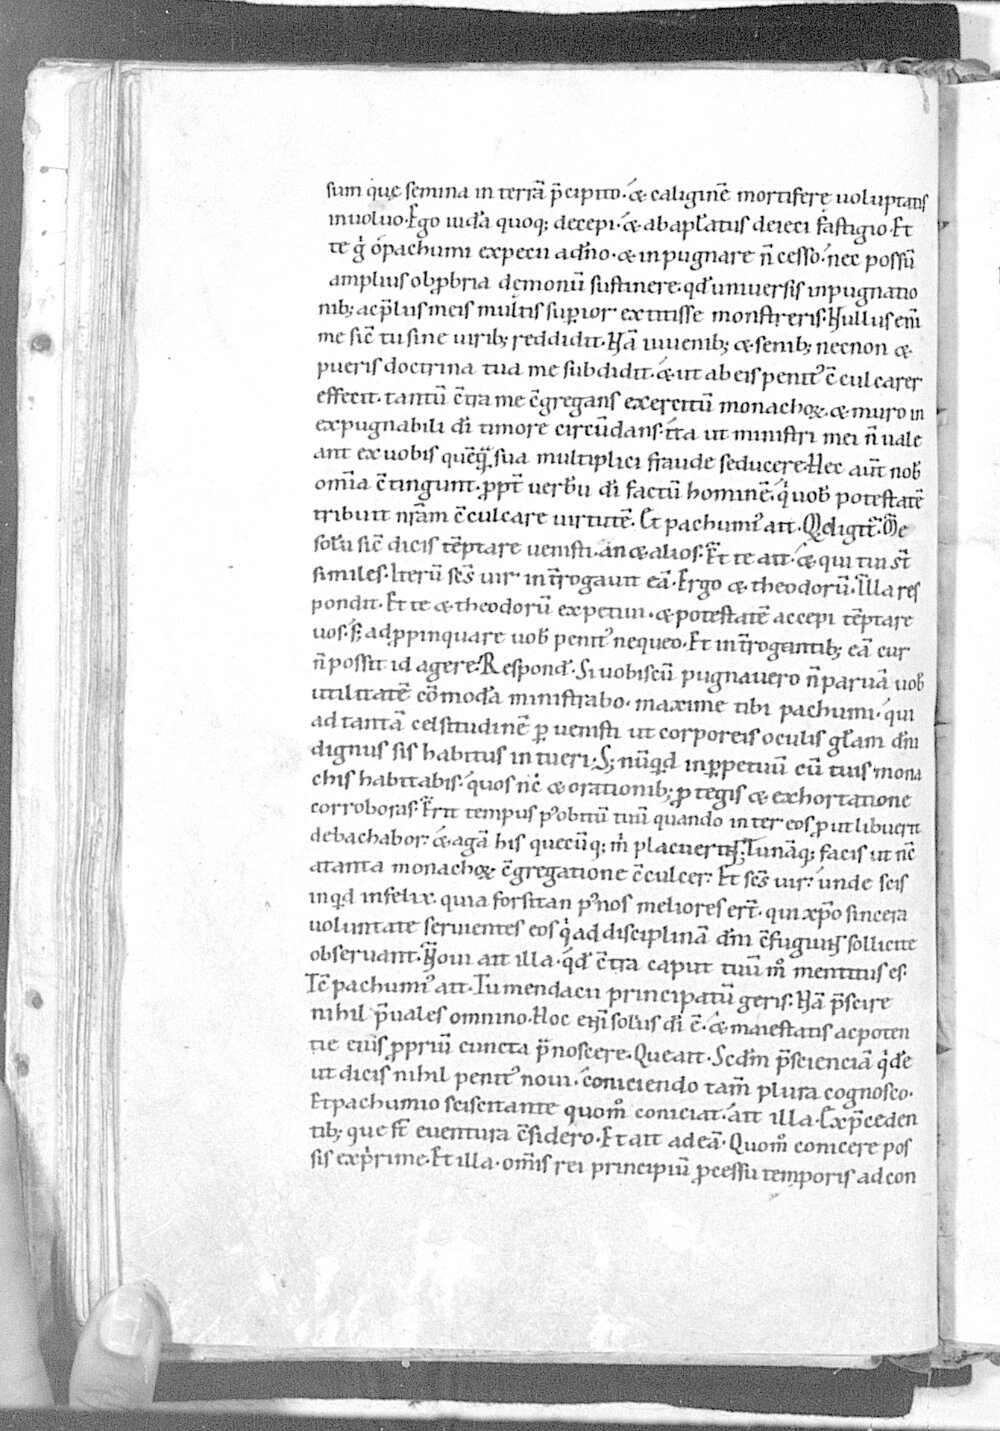 sum que semina in terrā p̄cipito. & caliginē mortiferę uoluptatis
inuoluo. Ego iudā quoq; decepi. & ab apl̄atus deieci fastigio. Et
te g̊ o pachumi expecii ad n̄o. & inpugnare n̄ cesso. nec possū
amplius obp̄bria demonū sustinere. qd̄ uniuersis inpugnatio
nib; ac p̄lus meis multis suꝑior extitisse monstreris. Nullus em̄
me sic̄ tu sine uirib; reddidit. Nā iuuenib; & senib; necnon &
pueris doctrina tua me subdidit. & ut ab eis penit᷒ c̄culcarer
effecit. tantū c̄tra me c̄gregans exercitū monachoꝝ. & muro in
expugnabili dī timore circūdans. ita ut ministri mei n̄ uale
ant ex uobis quēq̄ sua multiplici fraude seducere. Hec aut̄ nob̄
om̄ia c̄tingunt. ꝓpt̄ uerbū dī factū hominē. q̇ uob̄ potestatē
tribuit nr̄am c̄culcare uirtutē. Et pachumi᷒ ait. Me
solū sic̄ dicis tēptare uenisti. an & alios. Et te ait. & qui tui st̄
similes. Iterū sc̄s uir int̄rogauit eā. Ergo & theodorū. Illa res
pondit. Et te & theodorū expetiui. & potestatē accepi tēptare
uos. s; ad ꝓpinquare uob̄ penit᷒ nequeo. Et int̄rogantib; eā cur
n̄ possit id agere. Respond̄. Si uobiscū pugnauero n̄ paruā uob̄
utilitatē cōmodā ministrabo. maxime tibi pachumi. qui
ad tantā celsitudinē ꝑuenisti ut corporeis oculis gl̄am dn̄i
dignus sis habitus intueri. S; nūqd̄ inꝑpetuū cū tuis mona
chis habitabis. quos nc̄ & orationib; ꝓtegis & exhortatione
corroboras. Erit tempus p᷒ obitū tuū quando inter eos ꝓut libuerit
debachabor. & agā his quecūq; m̄ placuerit. Tu nāq; facis ut nc̄
a tanta monachoꝝ c̄gregatione c̄culcer. Et sc̄s uir. unde scis
inqd̄ infelix. quia forsitan p᷒ nos meliores ert̄. qui xp̄o sincera
uoluntate seruientes eos q̇ ad disciplinā dn̄i c̄fugiunt sollicite
obseruant. Noui ait illa. qd̄ c̄tra caput tuū m̊ mentitus es.
Tc̄ pachumi᷒ ait. Tu mendacii principatū geris. Nā p̄scire
nihil p̄uales omnino. Hoc eni solius dī ē. & maiestatis ac poten
tie eius ꝓpriū cuncta p̄noscere. Que ait. Scdm̄ p̄scienciā q̇dē
ut dicis nihil penit᷒ noui. coniciendo tam̄ plura cognosco.
Et pachumio sciscitante quom̊ coniciat. ait illa. Ex p̄ceden
tib; que st̄ euentura c̄sidero. Et ait ad eā. Quom̊ conicere pos
sis exp̄rime. Et illa. om̄is rei principiū ꝓcessu temporis ad con